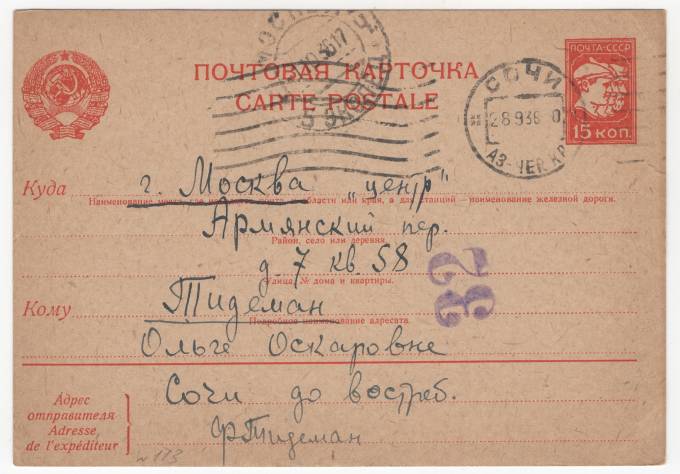 ПОЧТА-СССР
15 КОП.
ПОЧТОВАЯ КАРТОЧКА
CARTE POSTALE
МОСКВА
СОЧИ
28 9 36
АЗ-ЧЕР. КР.
Куда г. Москва „центр"
Наименование области или края, а для станций — наименование железной дороги.
Армянский пер.
Район, село или деревня.
д. 7 кв. 58
Улица, № дома и квартиры.
32
Кому Тидеман
Подробное наименование адресата.
Ольге Оскаровне
Адрес отправителя
Adresse, de l'expéditeur
Сочи до востреб.
Ф Тидеман